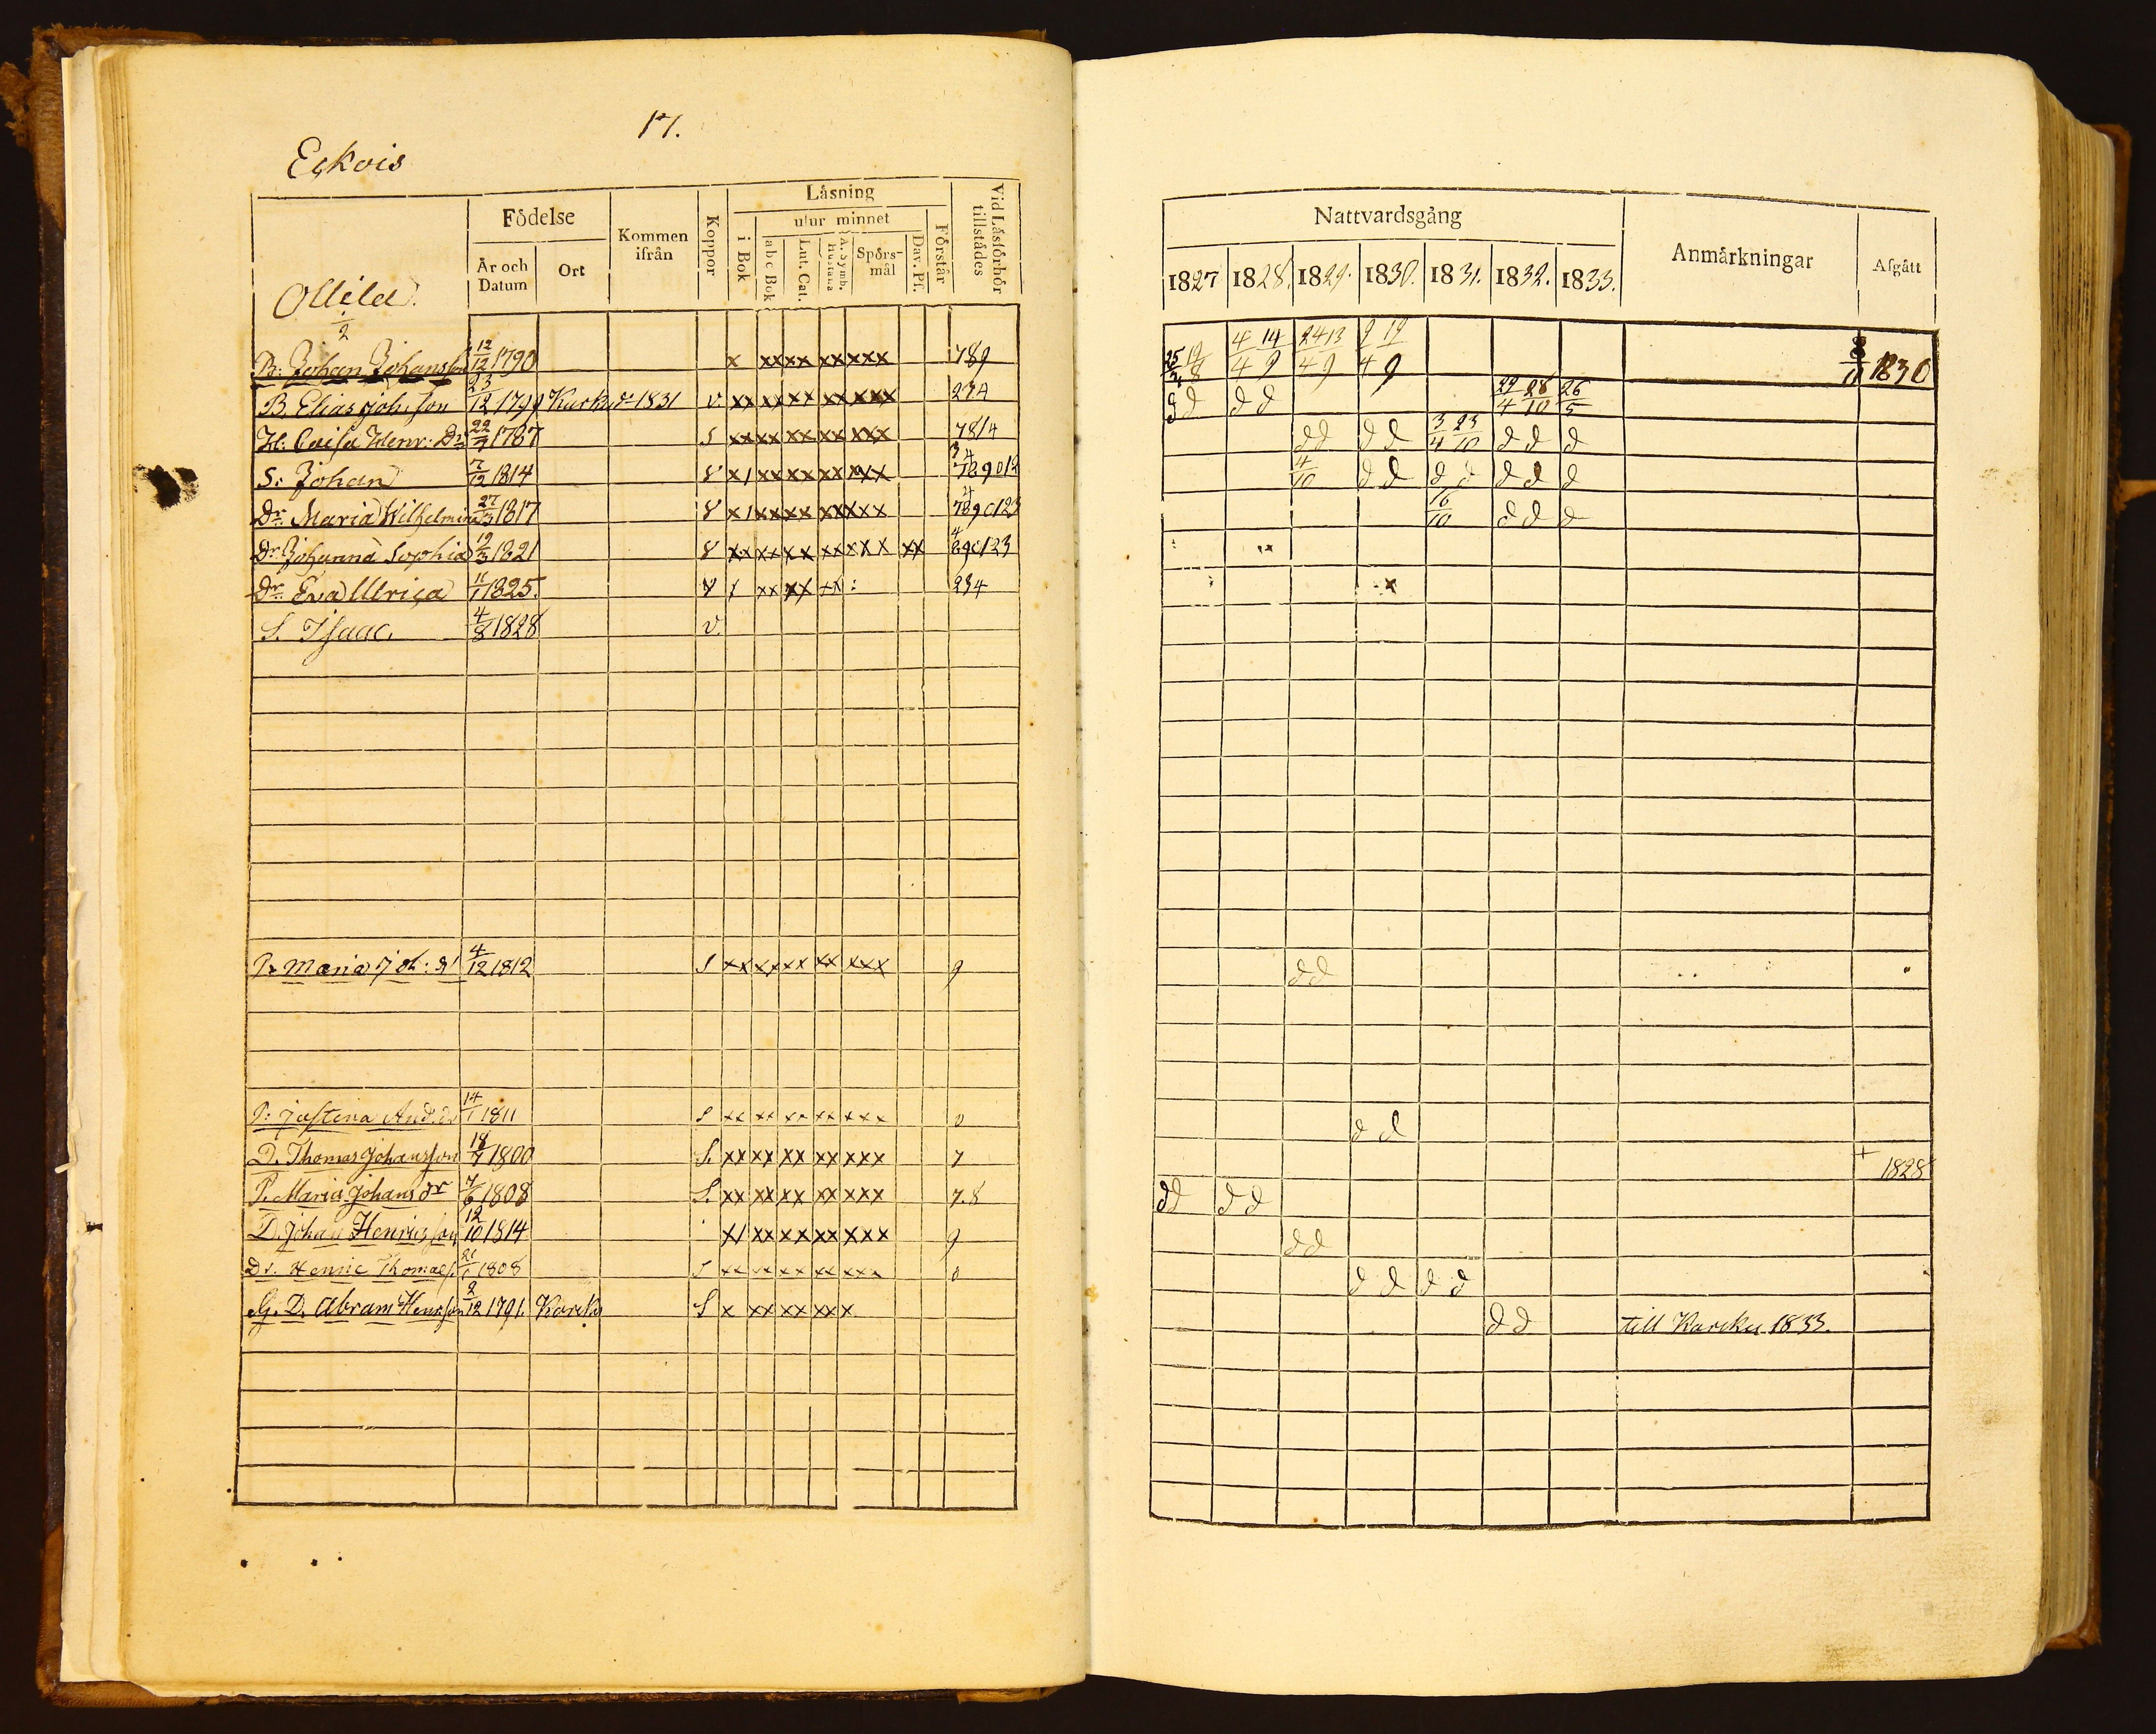 17.
Eskois
Ollila.
Födelse
År och Datum
Ort
Kommen ifrån
Koppor
Läsning
i Bok
utur minnet
abc Bok
Lut. Cat.
A. Symb. hustafla
Spörs-mål
Dav. Ps.
Förstår
Vid Läsförhör tillstädes
1/2
B: Johan Johansson 12/12 1790 x xx xx xx xxx 789
B. Elias Johsson 23/12 1799 Karku 1831 v xx xx xx xx xxx 234
H: Caisa Henr: Dr 22/7 1787 S xx xx xx xx xxx 7814
S: Johan 7/12 1814 8 x1 xx xx xx xxx 34 789012
Dr Maria Wilhelmina 27/3 1817 8 x1 xx xx xx xxx 4 7890123
Dr Johanna Sophia 19/3 1821 8 xx xx xx xx xxx xx 4 890123
Dr Eva Ulrica 11/1 1825. v 1 xx xx xx : 234
S. Isaac. 4/8 1828 v.
P. Maria Joh: dr 4/12 1812 S xx xx xx xx xxx 9
P: Justina And. dr 14/1 1811 S xx xx xx xx xxx 0
D. Thomas Johansson 18/7 1800 S. xx xx xx xx xxx 7
P. Maria Johans dr 7/6 1808 S. xx xx xx xx xxx 7.8
D. Johan Henricsson 12/10 1814 x1 xx xx xx xxx 9
Dr. Henric Thomass. 21/1 1808 S xx xx xx xx xxx 0
G. D. Abram Henrsson 2/12 1791. Karku S x xx xx xx x
Nattvardsgång
Anmärkningar
Afgått
1827 1828. 1829. 1830. 1831. 1832. 1833.
25/3 19/8 4/4 14/9 24/4 13/9 9/4 19/9 8/11 1830
d d d d 29/4 28/10 26/5
d d d d 3/4 23/10 d d d
4/10 d d d d d d d
16/10 d d d
d d
d d
+ 1828
d d d d
d d
d d d d
d d till Karcku 1833.